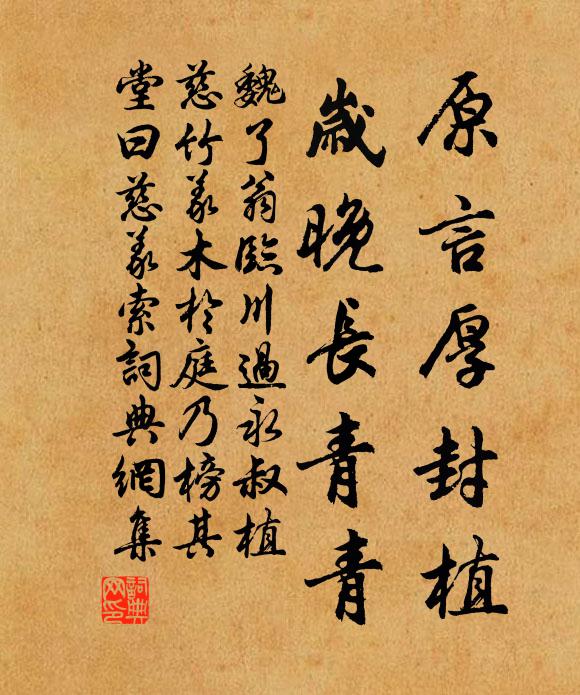 原言厚封植
歲晚長青青
魏了翁臨川過永叔植
慈竹義木於庭乃榜其
堂曰慈義索詞典網集
詞典網印